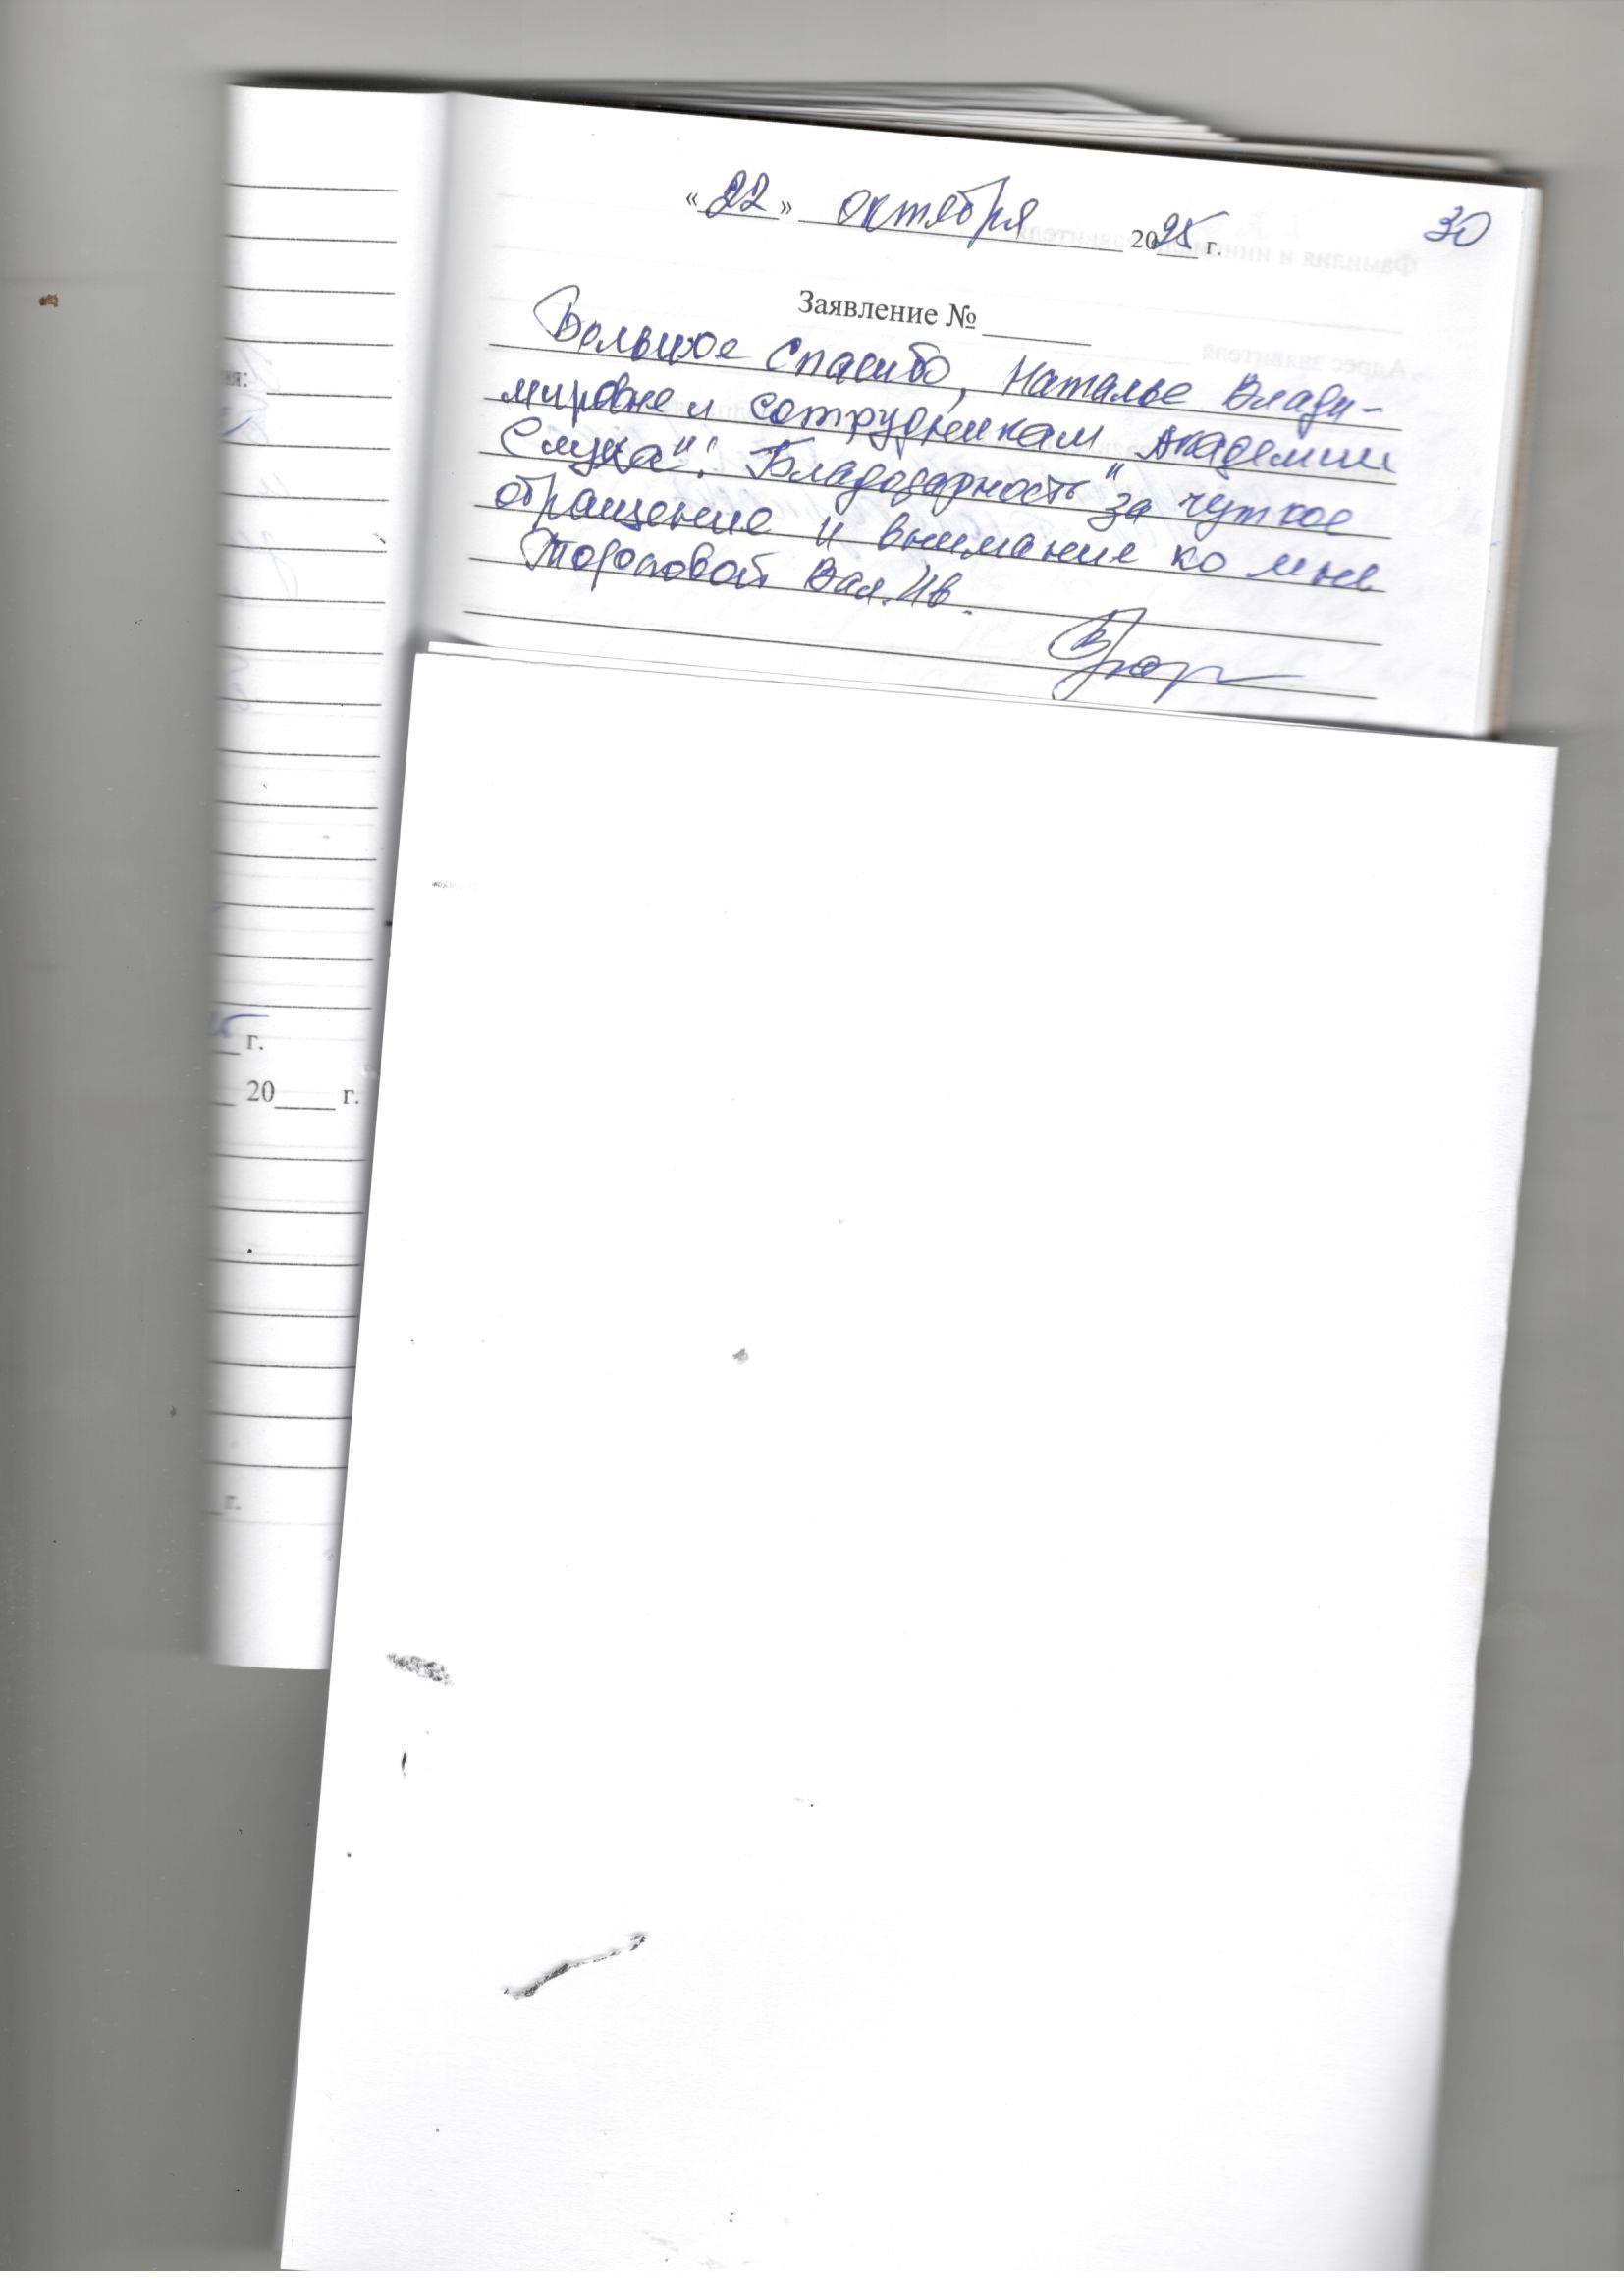 «22» октября 2025 г.
30
Заявление №
Большое Спасибо, Наталье Влади-
мировне и сотрудникам Академии
Слуха"! Благодарность "за чуткое
обращение и внимание ко мне
Вал. Ив.
г.
20 г.
г.